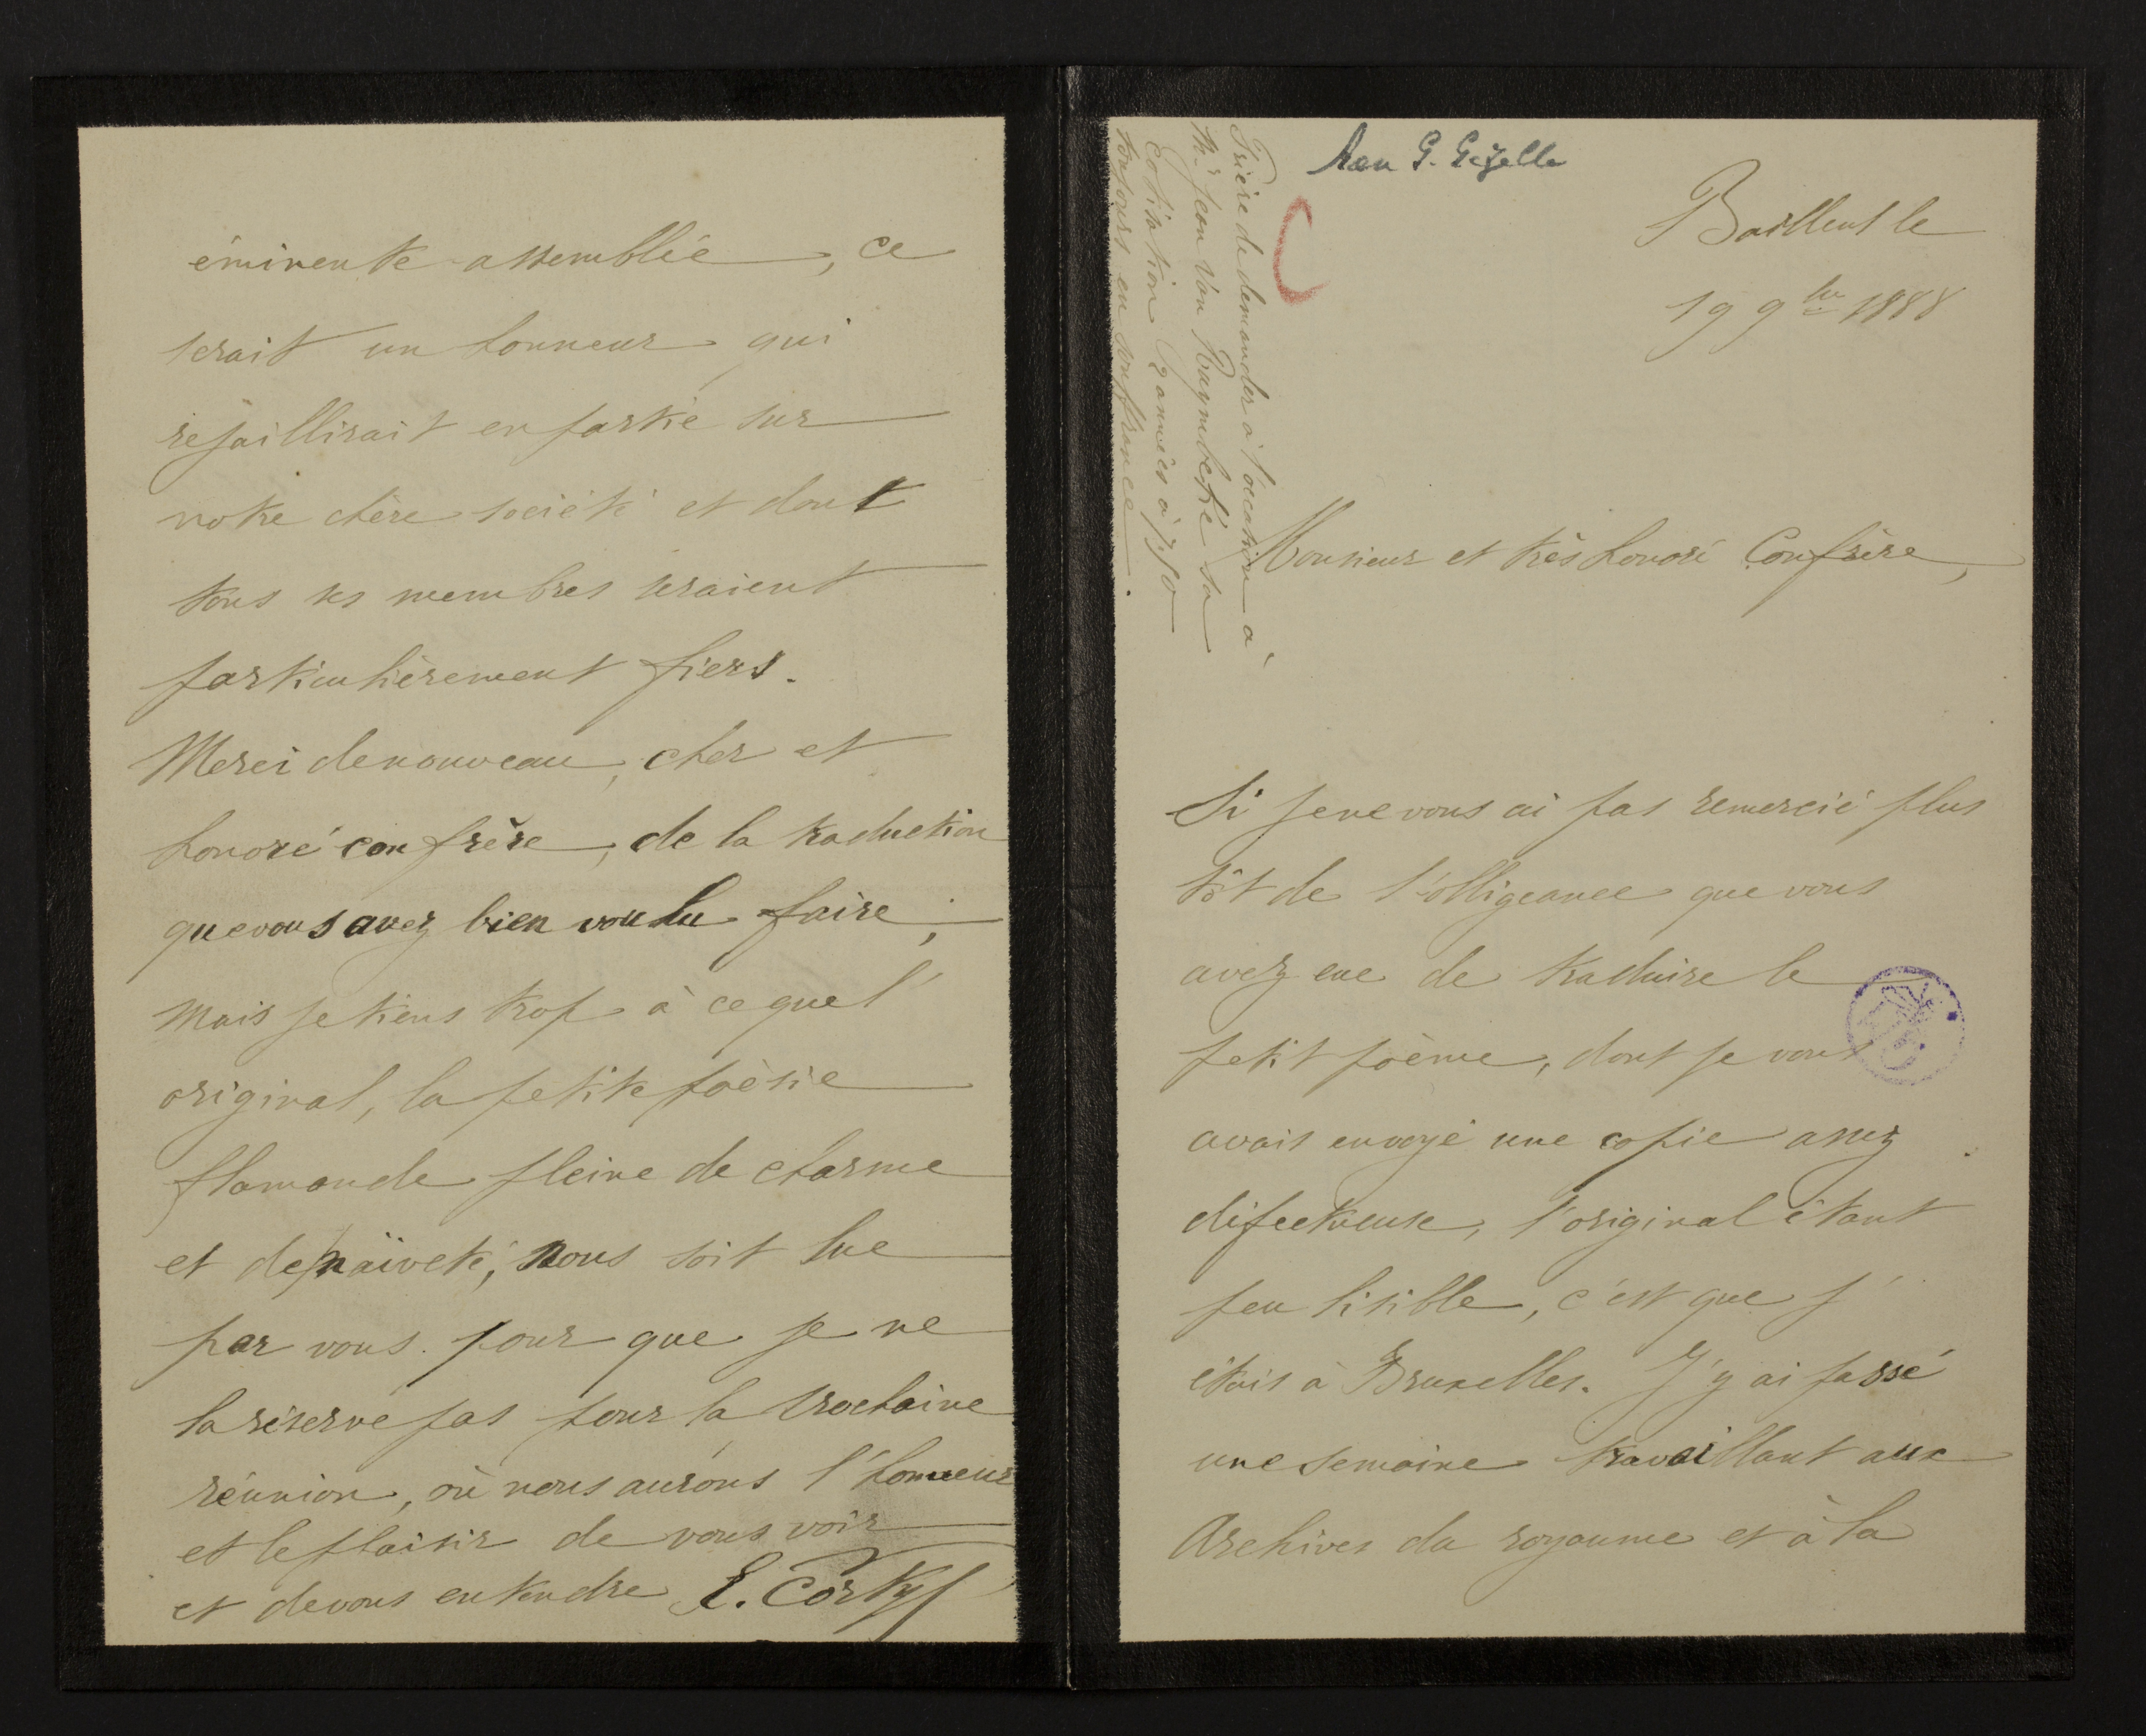 Aan G. Gezelle
Bailleul le
19 9bre 1888
Prière de demander à l'occasion à
Mr Jean Van Raymbeke sa
cotisation 2 années à 7,50
toujours en souffrance.
Monsieur et très honoré Confrère,
Si je ne vous ai pas remercié plus
tôt de l'obligeance que vous
avez eue de traduire le
petit poème, dont je vous
avais envoyé une copie assez
défectueuse, l'original étant
peu lisible, c'est que j'
étais à Bruxelles. J'y ai passé
une semaine travaillant aux
Archives du royaume et à la
éminente assemblée, ce
serait un honneur qui
rejaillirait en partie sur
notre chère société et dont
tous ses membres seraient
particulièrement fiers.
Merci de nouveau, cher et
honoré confrère, de la traduction
que vous avez bien voulu faire;
mais je tiens trop à ce que l'
original, la petite poèsie
flamande pleine de charme
et de naïveté, nous soit lue
par vous. pour que je ne
la réserve pas pour la prochaine
réunion, où nous aurons l'honneur
et le plaisir de vous voir
et de vous entendre E. Cortyl